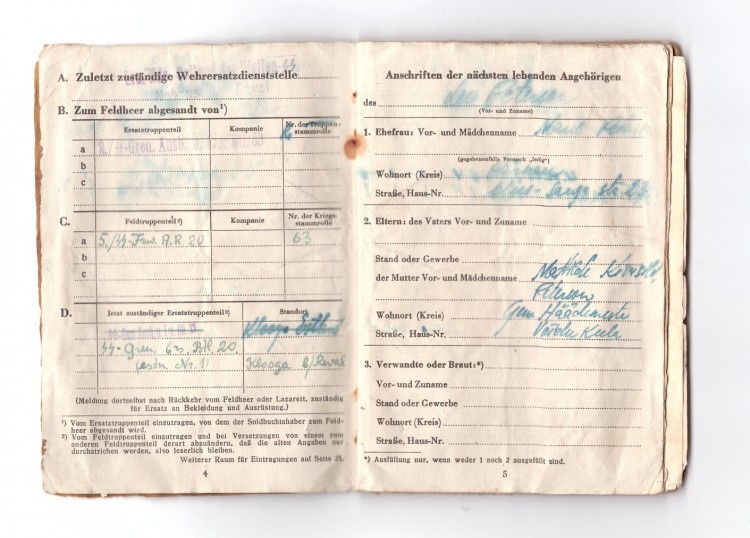 A. Zuletzt zuständige Wehrersatzdienststelle
B. Zum Feldheer abgesandt von¹)
Ersatztruppenteil Kompanie Nr. der Truppen-stammrolle
a
b
c
C. Feldtruppenteil²) Kompanie Nr. der Kriegs-stammrolle
a 5./SS-Frw. A.R. 20 63
b
c
D. Jetzt zuständiger Ersatztruppenteil²) Standort
Klooga
SS-Gren. Ers. Btl. 20
(estn. Nr. 1) Klooga b/Reval
(Meldung dortselbst nach Rückkehr vom Feldheer oder Lazarett, zuständig
für Ersatz an Bekleidung und Ausrüstung.)
¹) Vom Ersatztruppenteil einzutragen, von dem der Soldbuchinhaber zum Feld-
heer abgesandt wird.
²) Vom Feldtruppenteil einzutragen und bei Versetzungen von einem zum
anderen Feldtruppenteil derart abzuändern, daß die alten Angaben nur
durchstrichen werden, also leserlich bleiben.
Weiterer Raum für Eintragungen auf Seite 28.
4
Anschriften der nächsten lebenden Angehörigen
des
(Vor- und Zuname)
1. Ehefrau: Vor- und Mädchenname
(gegebenenfalls Vermerk „ledig“)
Wohnort (Kreis)
Straße, Haus-Nr.
2. Eltern: des Vaters Vor- und Zuname
Stand oder Gewerbe
der Mutter Vor- und Mädchenname
Wohnort (Kreis) Gem. Häädemeeste
Straße, Haus-Nr.
3. Verwandte oder Braut:*)
Vor- und Zuname
Stand oder Gewerbe
Wohnort (Kreis)
Straße, Haus-Nr.
*) Ausfüllung nur, wenn weder 1 noch 2 ausgefüllt sind.
5